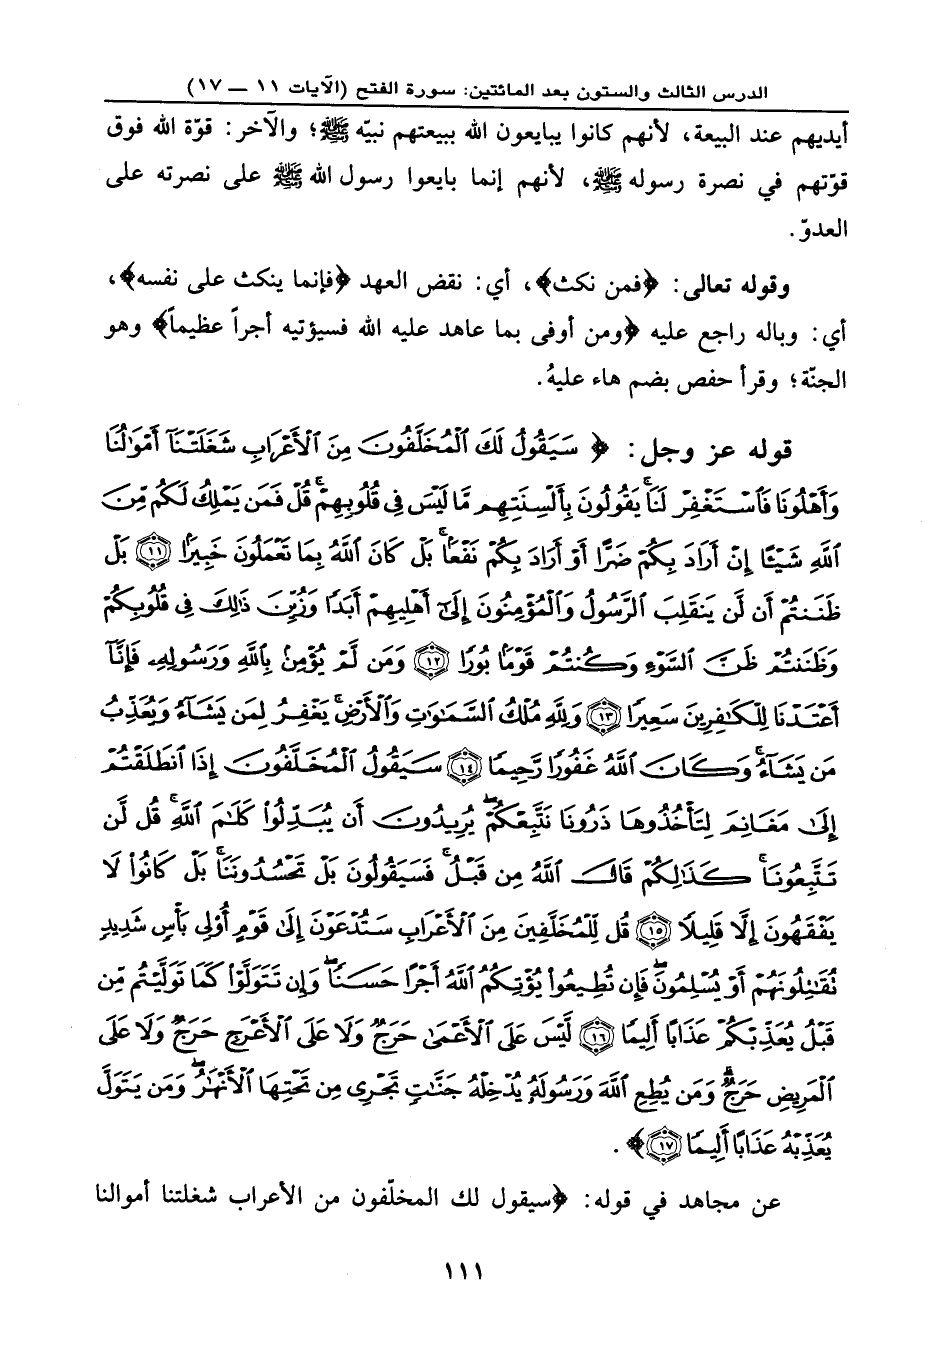 الدرس الثالث والستون بعد المائتين: سورة الفتح (الآيات ١١ — ١٧)
أيديهم عند البيعة، لأنهم كانوا يبايعون الله ببيعتهم نبيّه ﷺ؛ والآخر: قوّة الله فوق
قوّتهم في نصرة رسوله ﷺ، لأنهم إنما بايعوا رسول الله ﷺ على نصرته على
العدوّ.
وقوله تعالى: ﴿فمن نكث﴾، أي: نقض العهد ﴿فإنما ينكث على نفسه﴾،
أي: وباله راجع عليه ﴿ومن أوفى بما عاهد عليه الله فسيؤتيه أجراً عظيماً﴾ وهو
الجنّة؛ وقرأ حفص بضم هاء عليهُ.
قوله عز وجل: ﴿ سَيَقُولُ لَكَ ٱلْمُخَلَّفُونَ مِنَ ٱلْأَعْرَابِ شَغَلَتْنَآ أَمْوَٰلُنَا
وَأَهْلُونَا فَٱسْتَغْفِرْ لَنَا ۚ يَقُولُونَ بِأَلْسِنَتِهِم مَّا لَيْسَ فِى قُلُوبِهِمْ ۚ قُلْ فَمَن يَمْلِكُ لَكُم مِّنَ
ٱللَّهِ شَيْـًٔا إِنْ أَرَادَ بِكُمْ ضَرًّا أَوْ أَرَادَ بِكُمْ نَفْعًۢا ۚ بَلْ كَانَ ٱللَّهُ بِمَا تَعْمَلُونَ خَبِيرًۢا ﴿١١﴾ بَلْ
ظَنَنتُمْ أَن لَّن يَنقَلِبَ ٱلرَّسُولُ وَٱلْمُؤْمِنُونَ إِلَىٰٓ أَهْلِيهِمْ أَبَدًا وَزُيِّنَ ذَٰلِكَ فِى قُلُوبِكُمْ
وَظَنَنتُمْ ظَنَّ ٱلسَّوْءِ وَكُنتُمْ قَوْمًۢا بُورًا ﴿١٢﴾ وَمَن لَّمْ يُؤْمِنۢ بِٱللَّهِ وَرَسُولِهِۦ فَإِنَّآ
أَعْتَدْنَا لِلْكَـٰفِرِينَ سَعِيرًا ﴿١٣﴾ وَلِلَّهِ مُلْكُ ٱلسَّمَـٰوَٰتِ وَٱلْأَرْضِ ۚ يَغْفِرُ لِمَن يَشَآءُ وَيُعَذِّبُ
مَن يَشَآءُ ۚ وَكَانَ ٱللَّهُ غَفُورًا رَّحِيمًا ﴿١٤﴾ سَيَقُولُ ٱلْمُخَلَّفُونَ إِذَا ٱنطَلَقْتُمْ
إِلَىٰ مَغَانِمَ لِتَأْخُذُوهَا ذَرُونَا نَتَّبِعْكُمْ ۖ يُرِيدُونَ أَن يُبَدِّلُوا۟ كَلَـٰمَ ٱللَّهِ ۚ قُل لَّن
تَتَّبِعُونَا ۚ كَذَٰلِكُمْ قَالَ ٱللَّهُ مِن قَبْلُ ۚ فَسَيَقُولُونَ بَلْ تَحْسُدُونَنَا ۚ بَلْ كَانُوا۟ لَا
يَفْقَهُونَ إِلَّا قَلِيلًا ﴿١٥﴾ قُل لِّلْمُخَلَّفِينَ مِنَ ٱلْأَعْرَابِ سَتُدْعَوْنَ إِلَىٰ قَوْمٍ أُو۟لِى بَأْسٍ شَدِيدٍ
تُقَـٰتِلُونَهُمْ أَوْ يُسْلِمُونَ ۖ فَإِن تُطِيعُوا۟ يُؤْتِكُمُ ٱللَّهُ أَجْرًا حَسَنًا ۖ وَإِن تَتَوَلَّوْا۟ كَمَا تَوَلَّيْتُم مِّن
قَبْلُ يُعَذِّبْكُمْ عَذَابًا أَلِيمًا ﴿١٦﴾ لَّيْسَ عَلَى ٱلْأَعْمَىٰ حَرَجٌ وَلَا عَلَى ٱلْأَعْرَجِ حَرَجٌ وَلَا عَلَى
ٱلْمَرِيضِ حَرَجٌ ۗ وَمَن يُطِعِ ٱللَّهَ وَرَسُولَهُۥ يُدْخِلْهُ جَنَّـٰتٍ تَجْرِى مِن تَحْتِهَا ٱلْأَنْهَـٰرُ ۖ وَمَن يَتَوَلَّ
يُعَذِّبْهُ عَذَابًا أَلِيمًا ﴿١٧﴾﴾ .
عن مجاهد في قوله: ﴿سيقول لك المخلّفون من الأعراب شغلتنا أموالنا
١١١